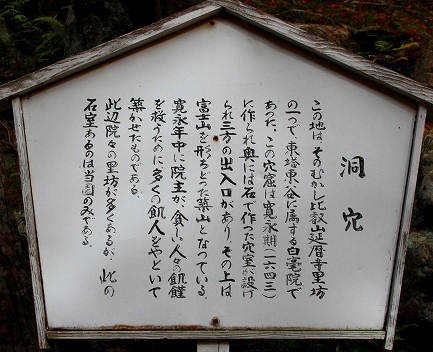 洞穴
この地は、そのむかし比叡山延暦寺里坊
の一つで、東塔東谷に属する白毫院で
あった。この穴窟は寛永期(一六四三)
に作られ奥には石で作った穴室が設け
られ三方の出入口があり、その上は
富士山を形どった築山となっている。
寛永年中に院主が、貧しい人々の飢饉
を救うために多くの飢人をやといて
築かせたものである。
此辺院々の里坊が多くあるが、此の
石室あるのは当園のみである。